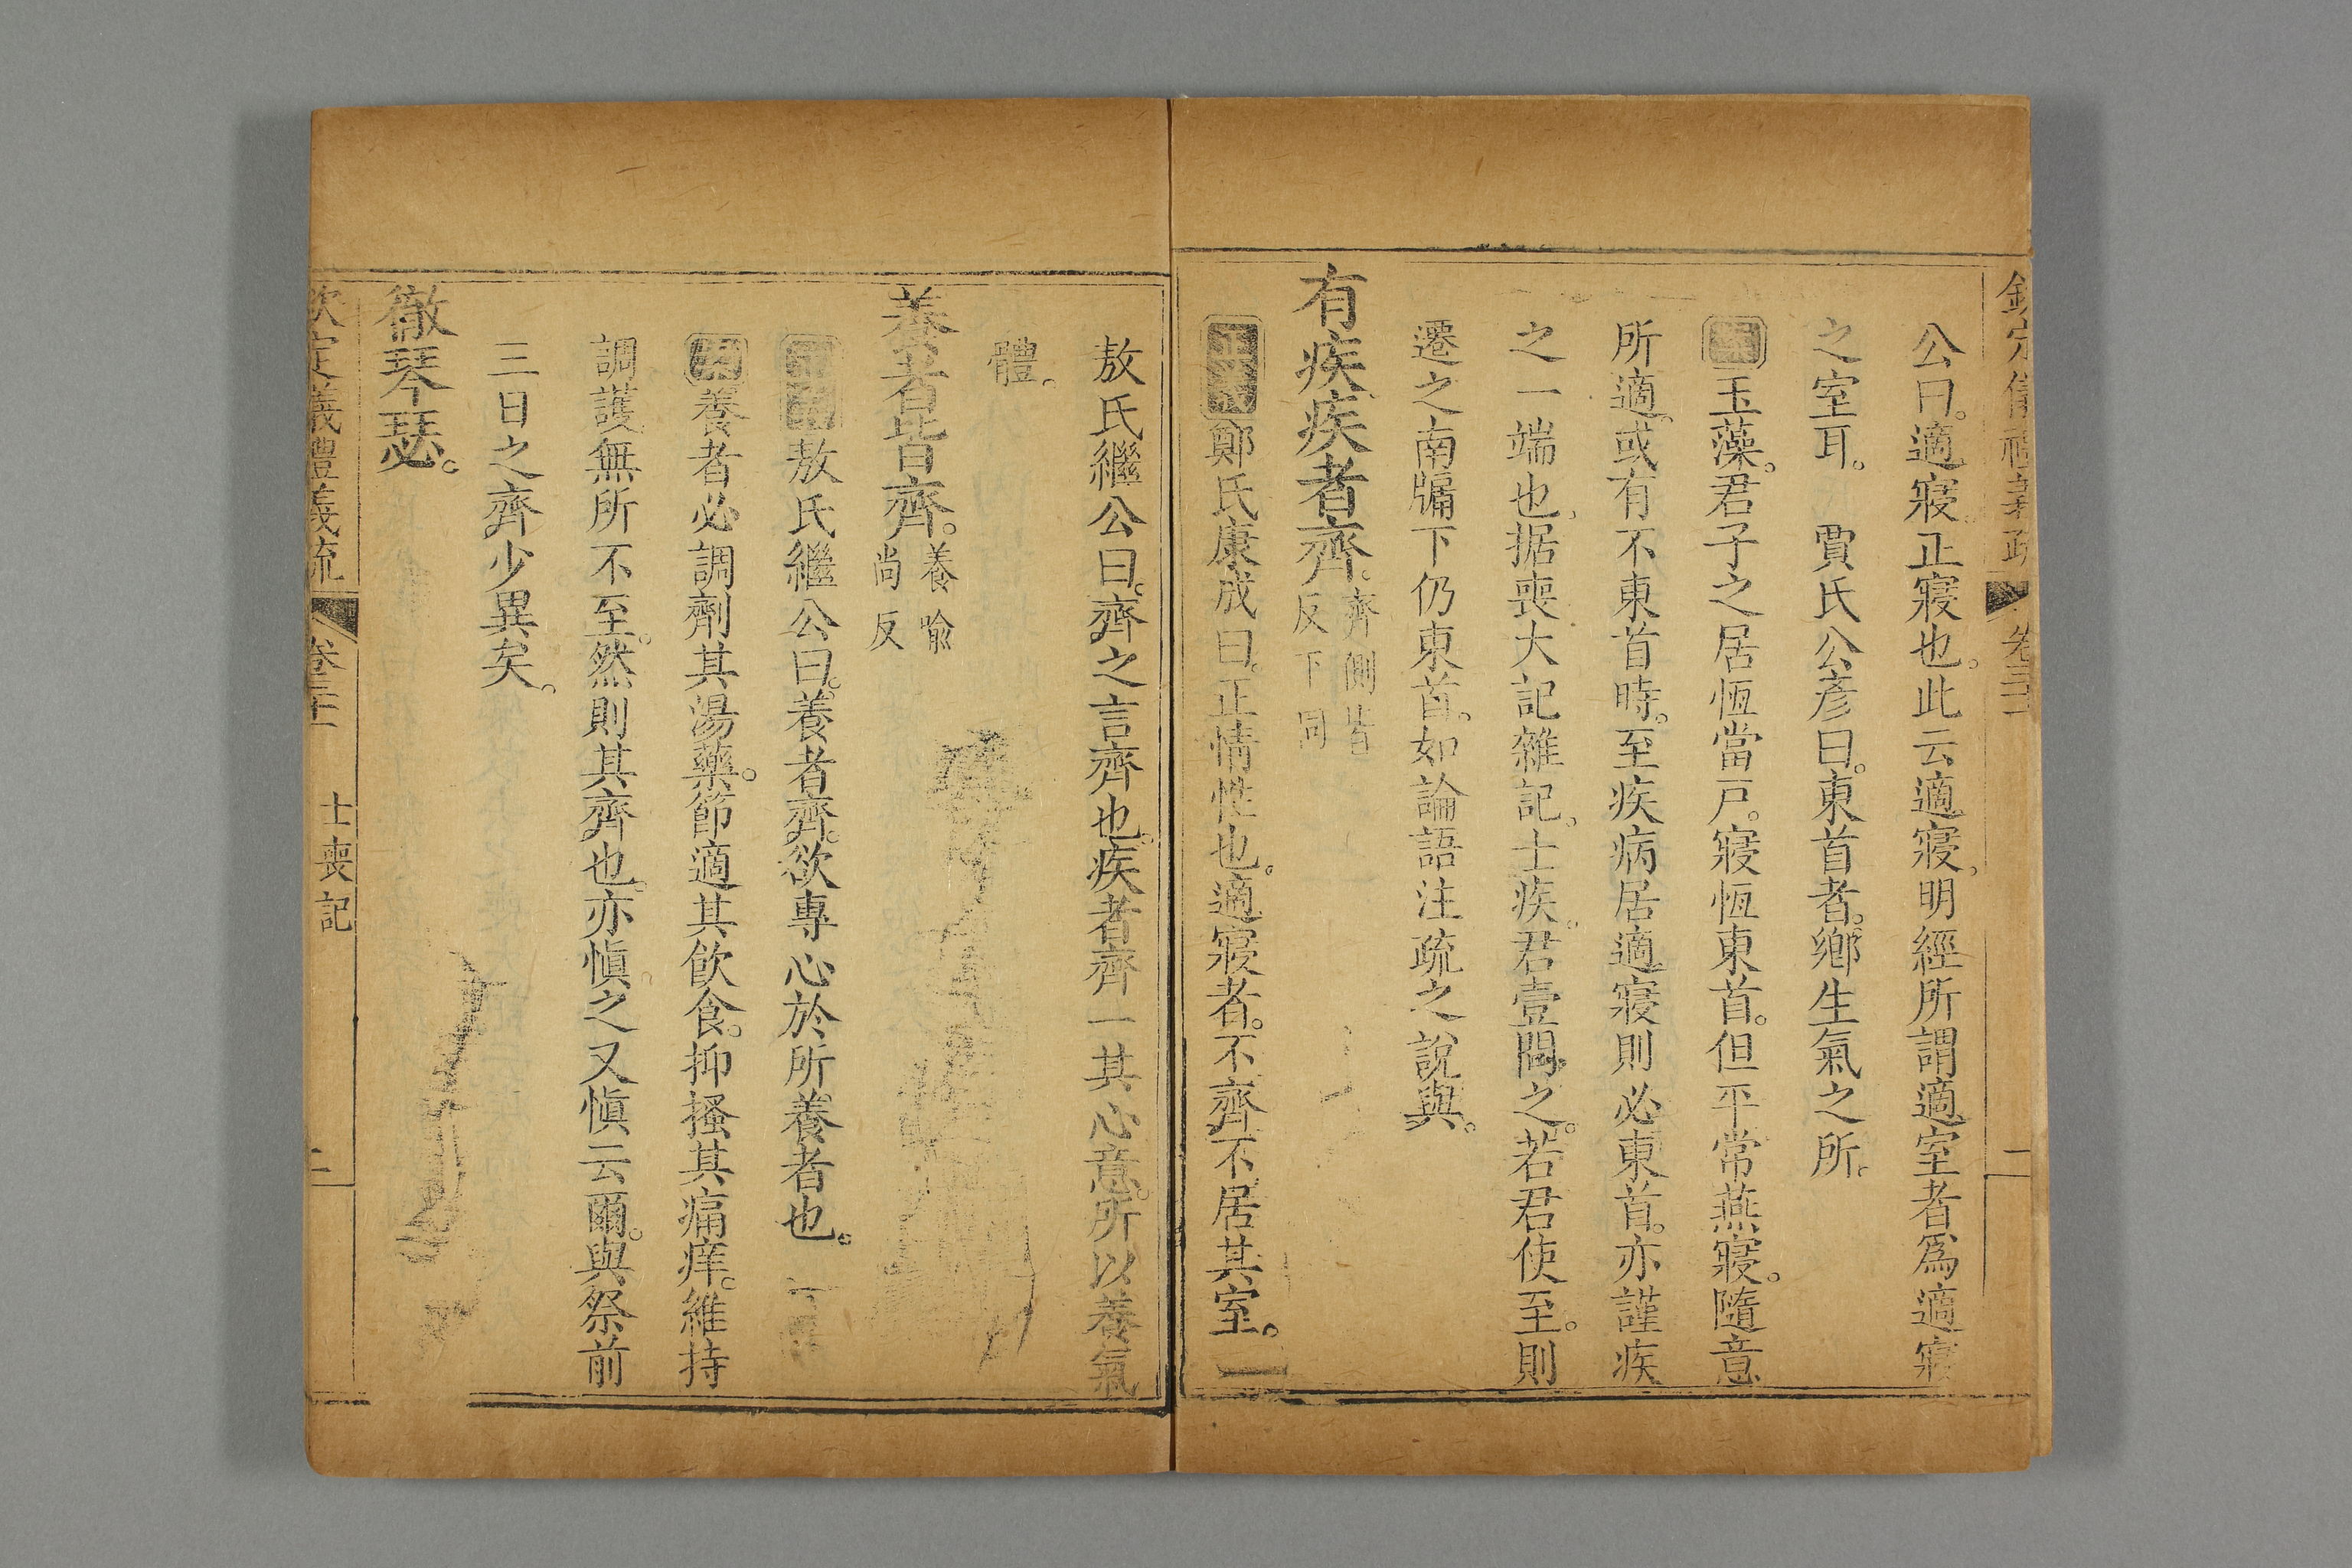 公曰。適寢。正寢也。此云適寢。明經所謂適室者爲適寢
之室耳。　賈氏公彥曰。東首者。鄉生氣之所。
玉藻。君子之居恆當戶。寢恆東首。但平常燕寢。隨意
所適。或有不東首時。至疾病居適寢則必東首。亦謹疾
之一端也。据喪大記雜記。士疾。君壹問之。若君使至。則
遷之南牖下仍東首。如論語注疏之說與。
有疾疾者齊。齊側皆反下同
鄭氏康成曰。正情性也。適寢者。不齊不居其室。
敖氏繼公曰。齊之言齊也。疾者齊一其心意。所以養氣
體。
養者皆齊。養喩尚反
敖氏繼公曰。養者齊。欲專心於所養者也。
養者必調劑其湯藥。節適其飲食。抑搔其痛痒。維持
調護無所不至。然則其齊也。亦愼之又愼云爾。與祭前
三日之齊少異矣。
徹琴瑟。
欽定儀禮義疏　卷三十一　士喪記　二